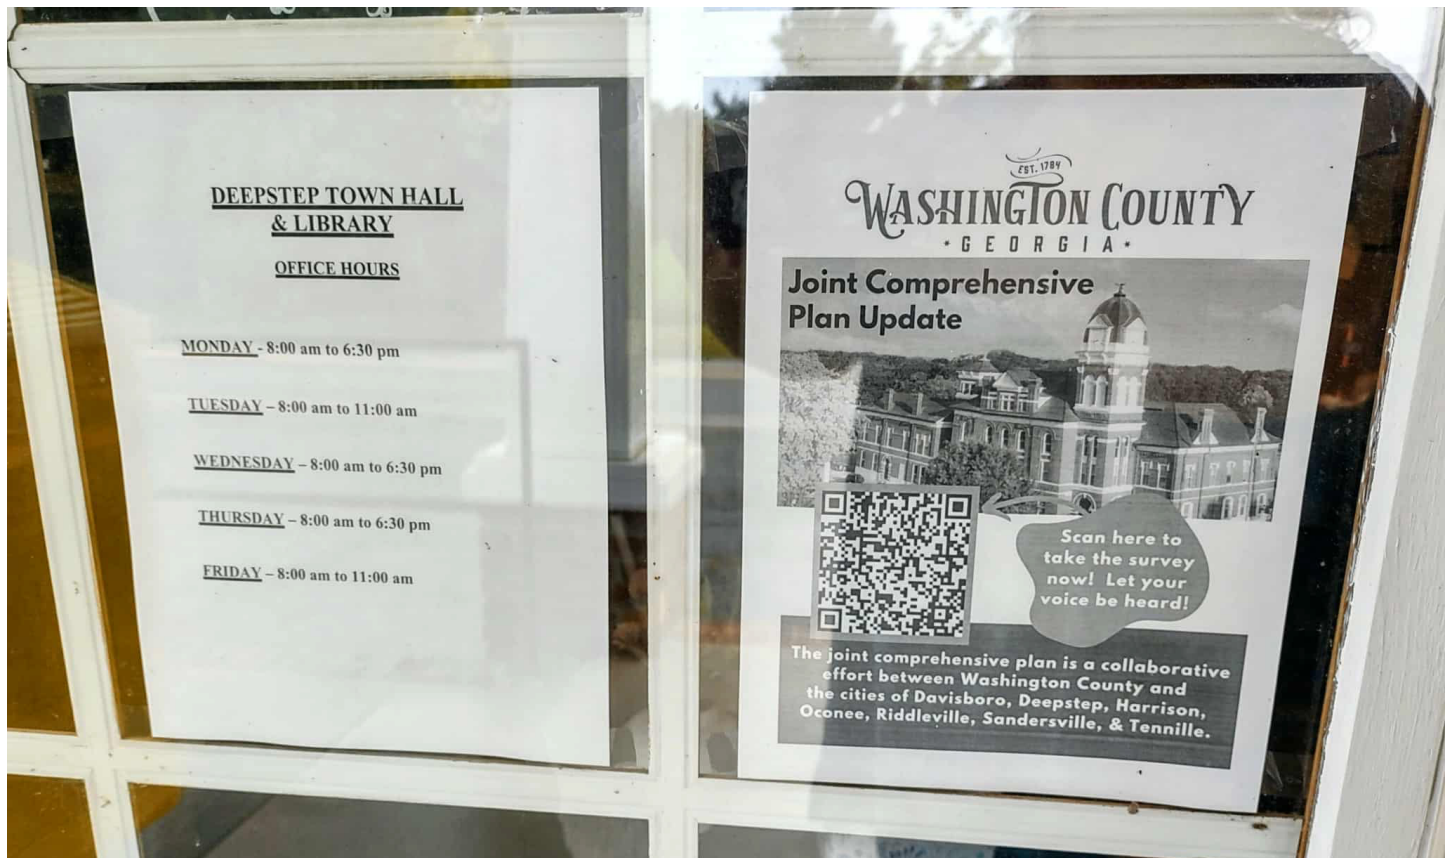 DEEPSTEP TOWN HALL
& LIBRARY
OFFICE HOURS
MONDAY - 8:00 am to 6:30 pm
TUESDAY – 8:00 am to 11:00 am
WEDNESDAY – 8:00 am to 6:30 pm
THURSDAY – 8:00 am to 6:30 pm
FRIDAY – 8:00 am to 11:00 am
EST. 1784
WASHINGTON COUNTY
• GEORGIA •
Joint Comprehensive
Plan Update
Scan here to
take the survey
now! Let your
voice be heard!
The joint comprehensive plan is a collaborative
effort between Washington County and
the cities of Davisboro, Deepstep, Harrison,
Oconee, Riddleville, Sandersville, & Tennille.